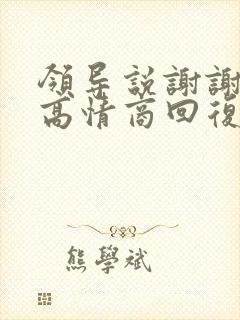 領导説謝謝
高情商回復
熊學斌